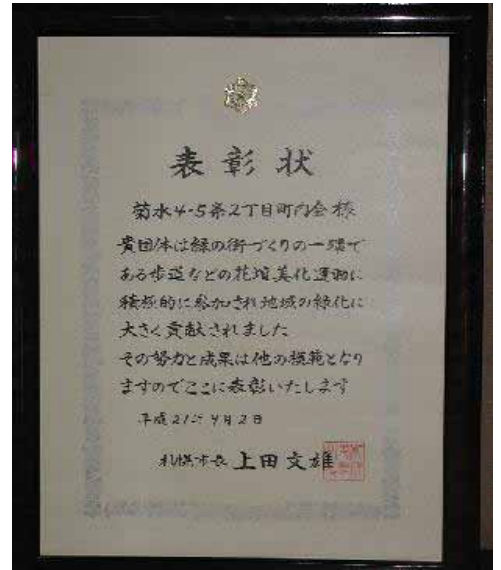 表彰状
菊水4-5条2丁目町内会様
貴団体は緑の街づくりの一環で
ある歩道などの花壇美化運動に
積極的に参加され地域の緑化に
大きく貢献されました
その努力と成果は他の模範となり
ますのでここに表彰いたします
平成21年4月2日
札幌市長 上田文雄